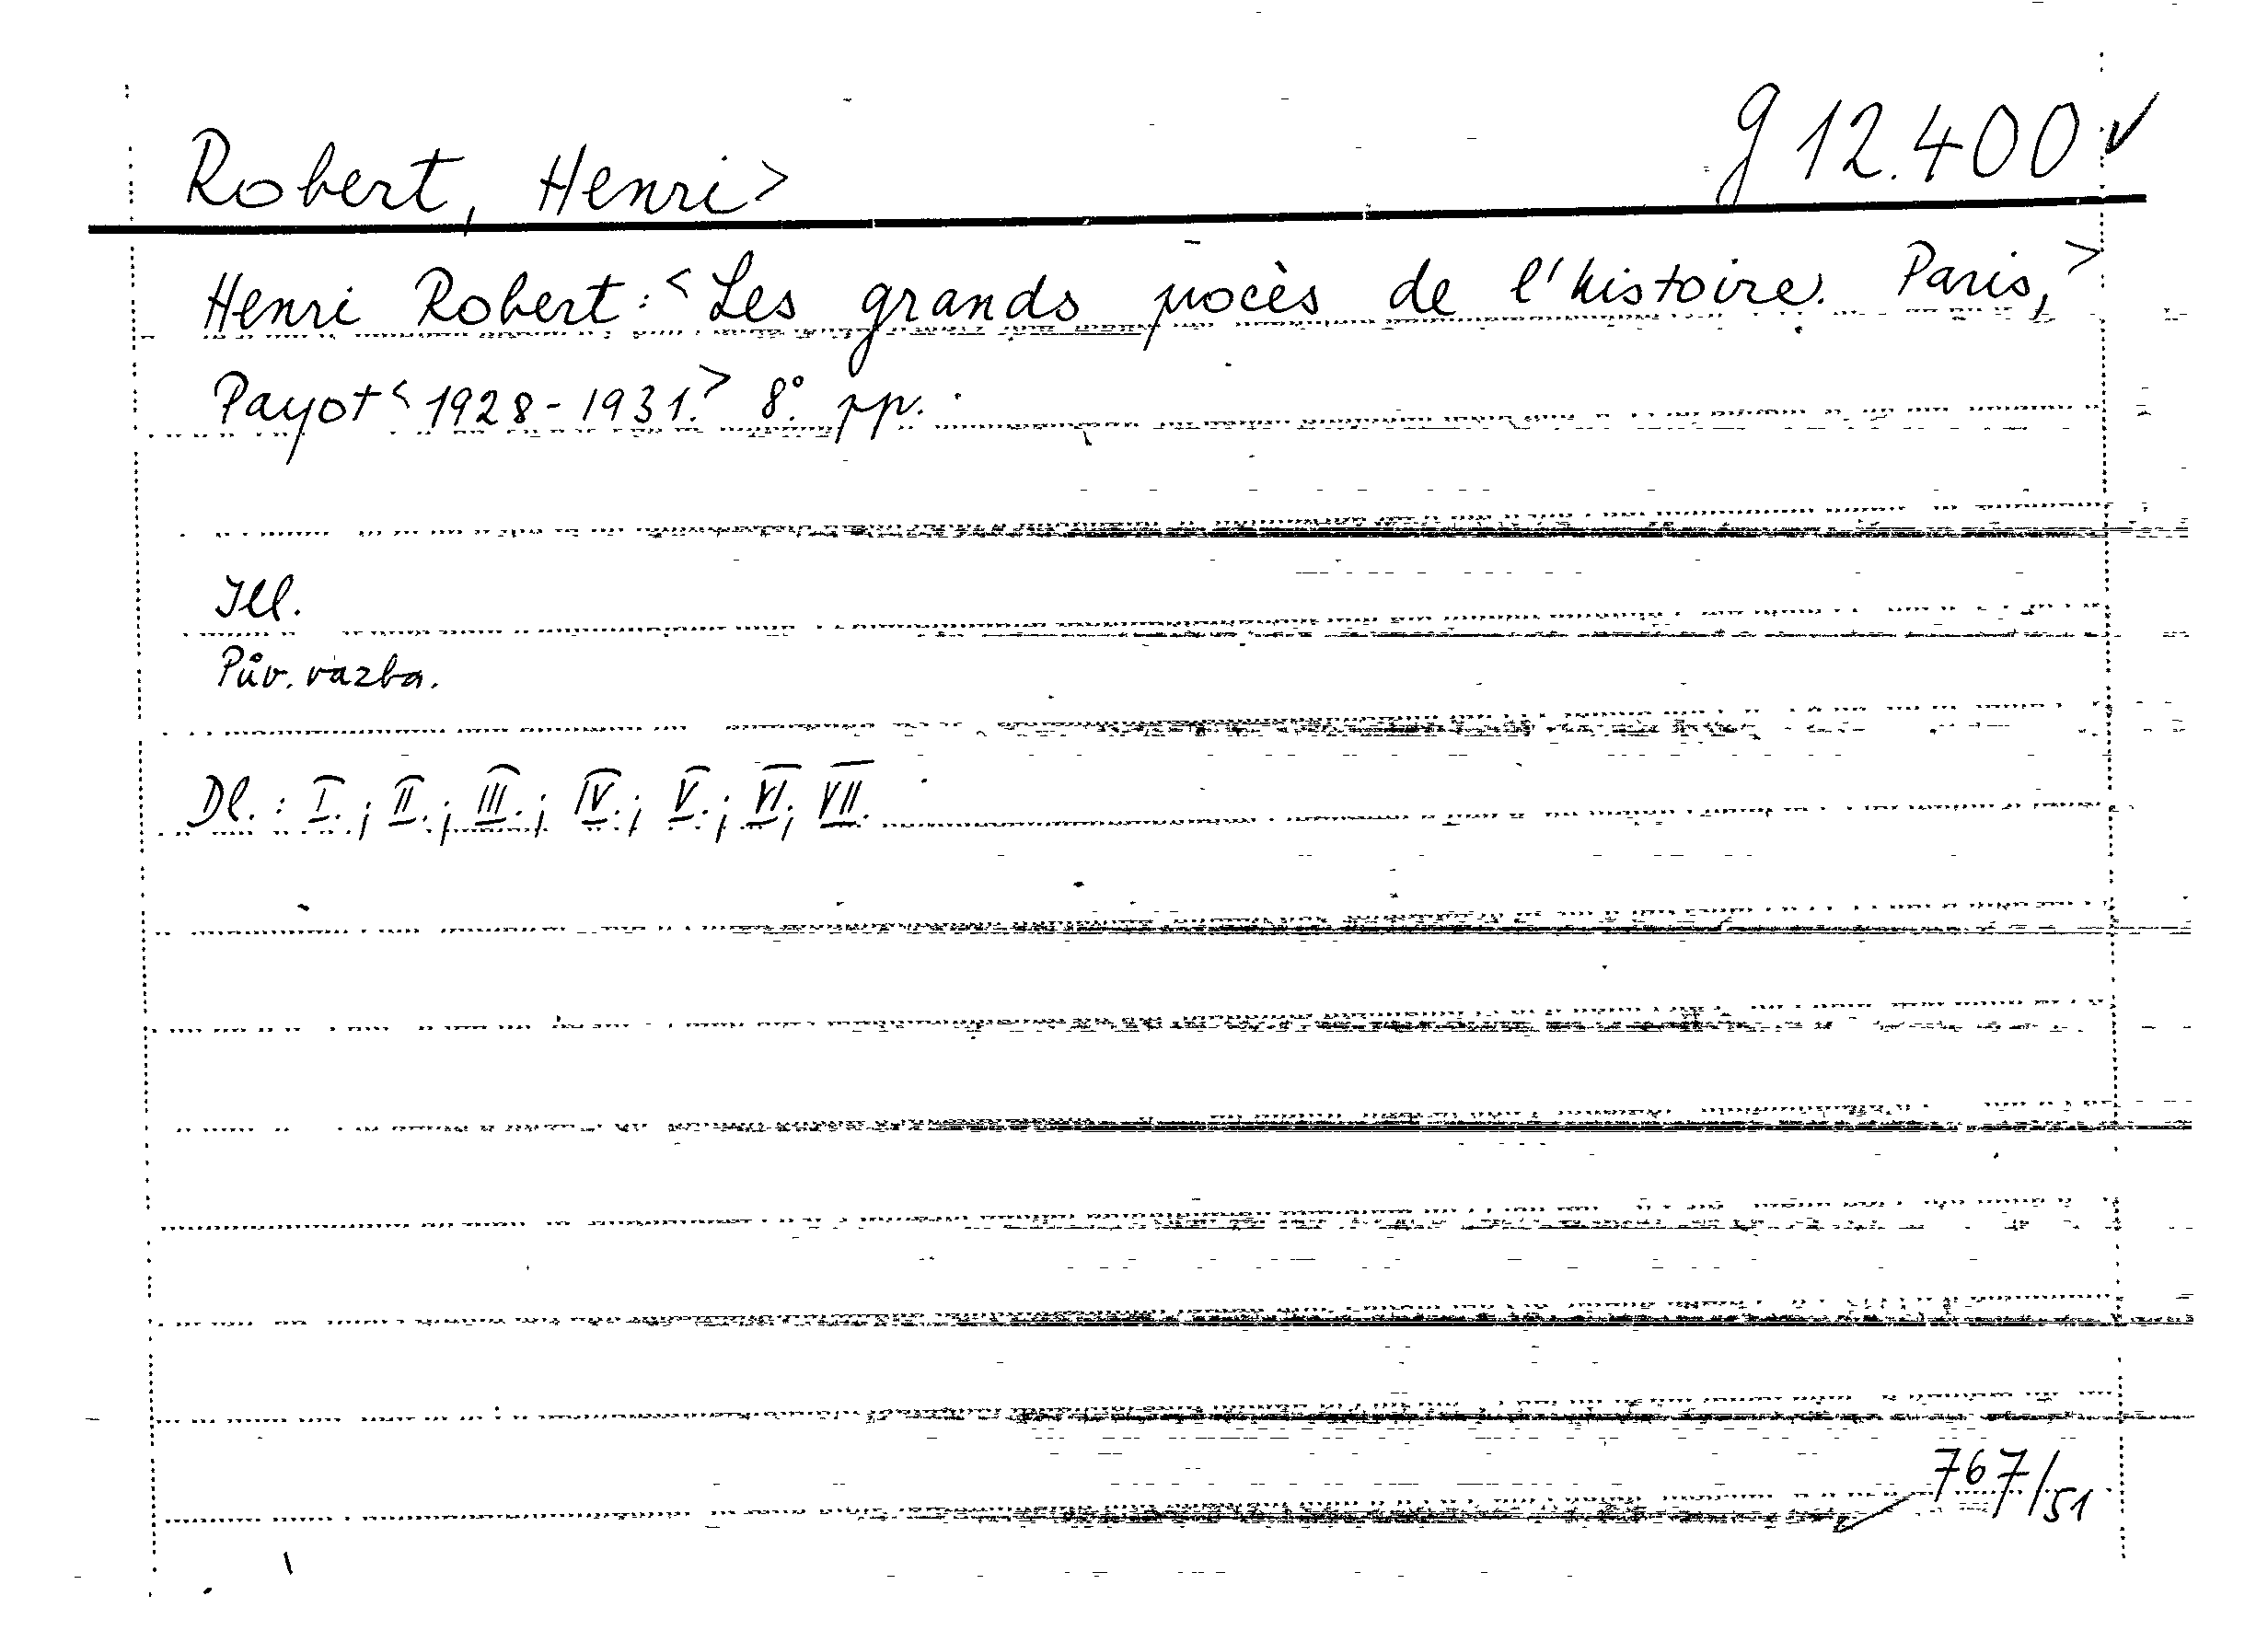 Robert, Henri> g 12.400 v
Henri Robert: <Les grands procès de l'histoire. Paris,>
Payot <1928-1931.> 8°. pp.
Ill.
Pův. vazba.
Dl.: I.; II.; III.; IV.; V.; VI; VII.
767/51